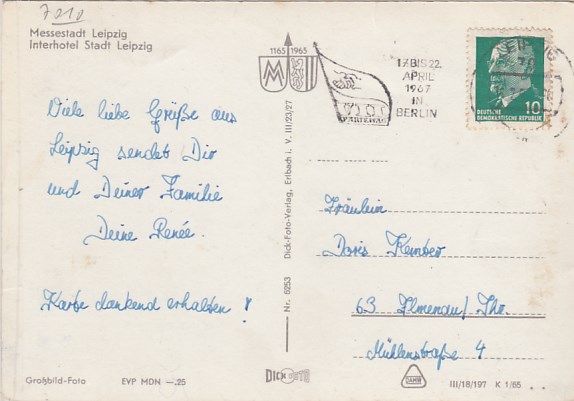 7010
Messestadt Leipzig
Interhotel Stadt Leipzig
1165 1965
MM
VII. SED
PARTEITAG
17. BIS 22.
APRIL
1967
IN
BERLIN
LEIPZIG
DEUTSCHE
DEMOKRATISCHE REPUBLIK
10
Viele liebe Grüße aus
Leipzig sendet Dir
und Deiner Familie
Deine Renée.
Karte dankend erhalten!
Nr. 5253 Dick-Foto-Verlag, Erlbach i. V. III/23/27
Fräulein
Doris Kember
63 Ilmenau/Thr.
Mühlenstraße 4
Großbild-Foto
EVP MDN —.25
DICK FOTO
DAMW
III/18/197 K 1/65